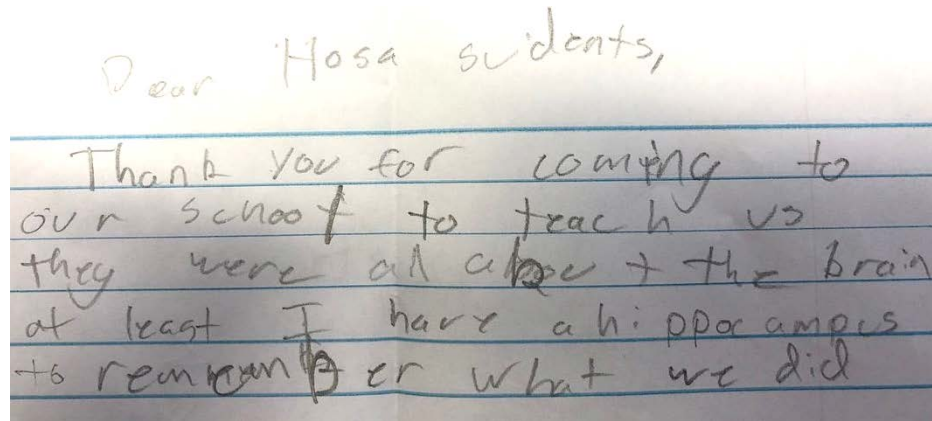 Dear Hosa sudents,
Thank you for coming to
our school to teach us
they were all about the brain
at least I have a hippocampus
to remember what we did